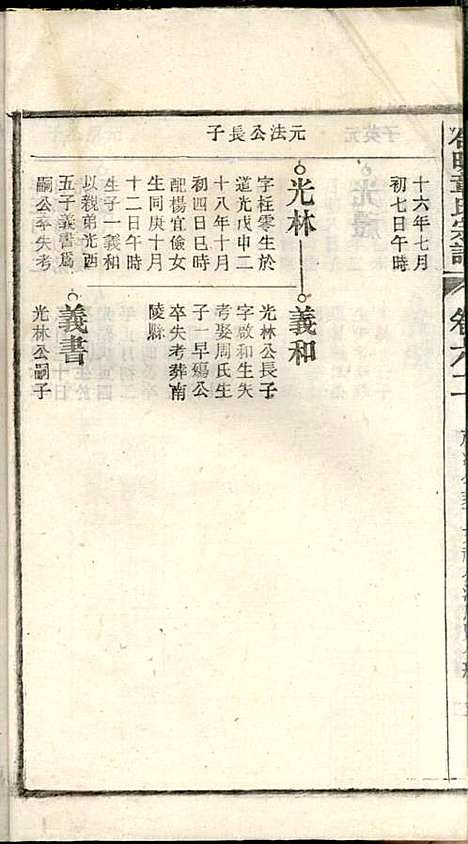 章氏宗譜 卷六二
元法公長子
十六年七月
初七日午時
光林
字枉零生於
道光戊申二
十八年十月
初四日巳時
配楊宜儉女
生同庚十月
十二日午時
生子一義和
以親弟光酉
五子義書爲
嗣公卒失考
義和
光林公長子
字啟和生失
考娶周氏生
子一早殤公
卒失考葬南
陵縣
義書
光林公嗣子